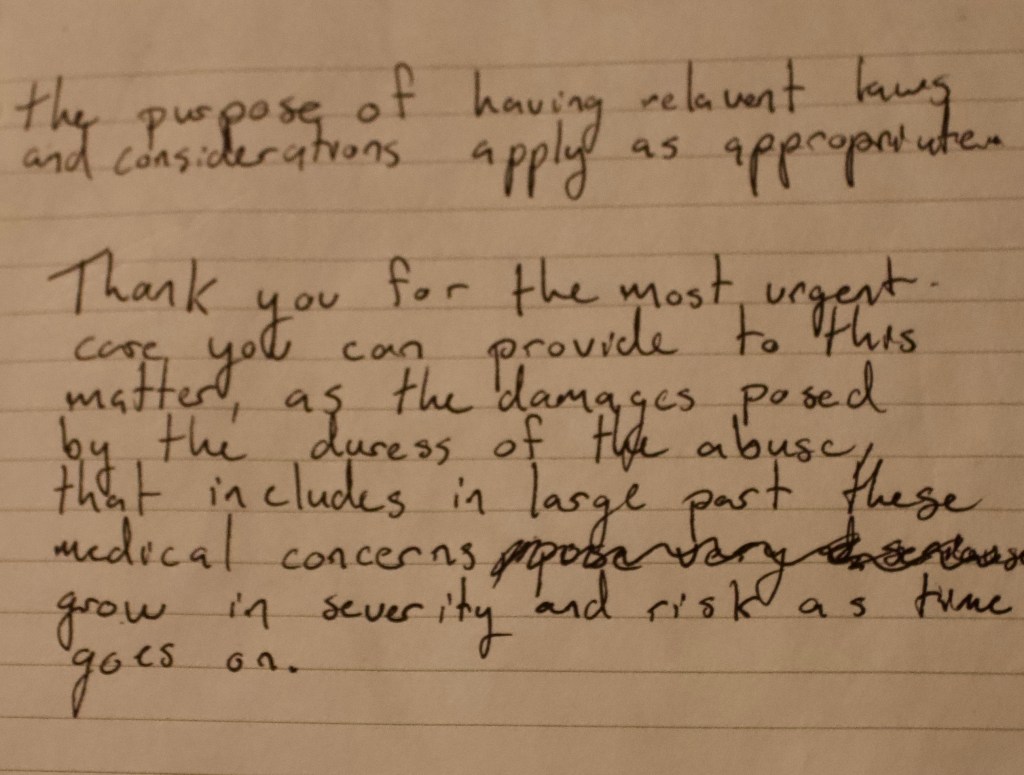 the purpose of having relavent laws
and considerations apply as appropriate.
Thank you for the most urgent
care you can provide to this
matter, as the damages posed
by the duress of the abuse,
that includes in large part these
medical concerns
grow in severity and risk as time
goes on.